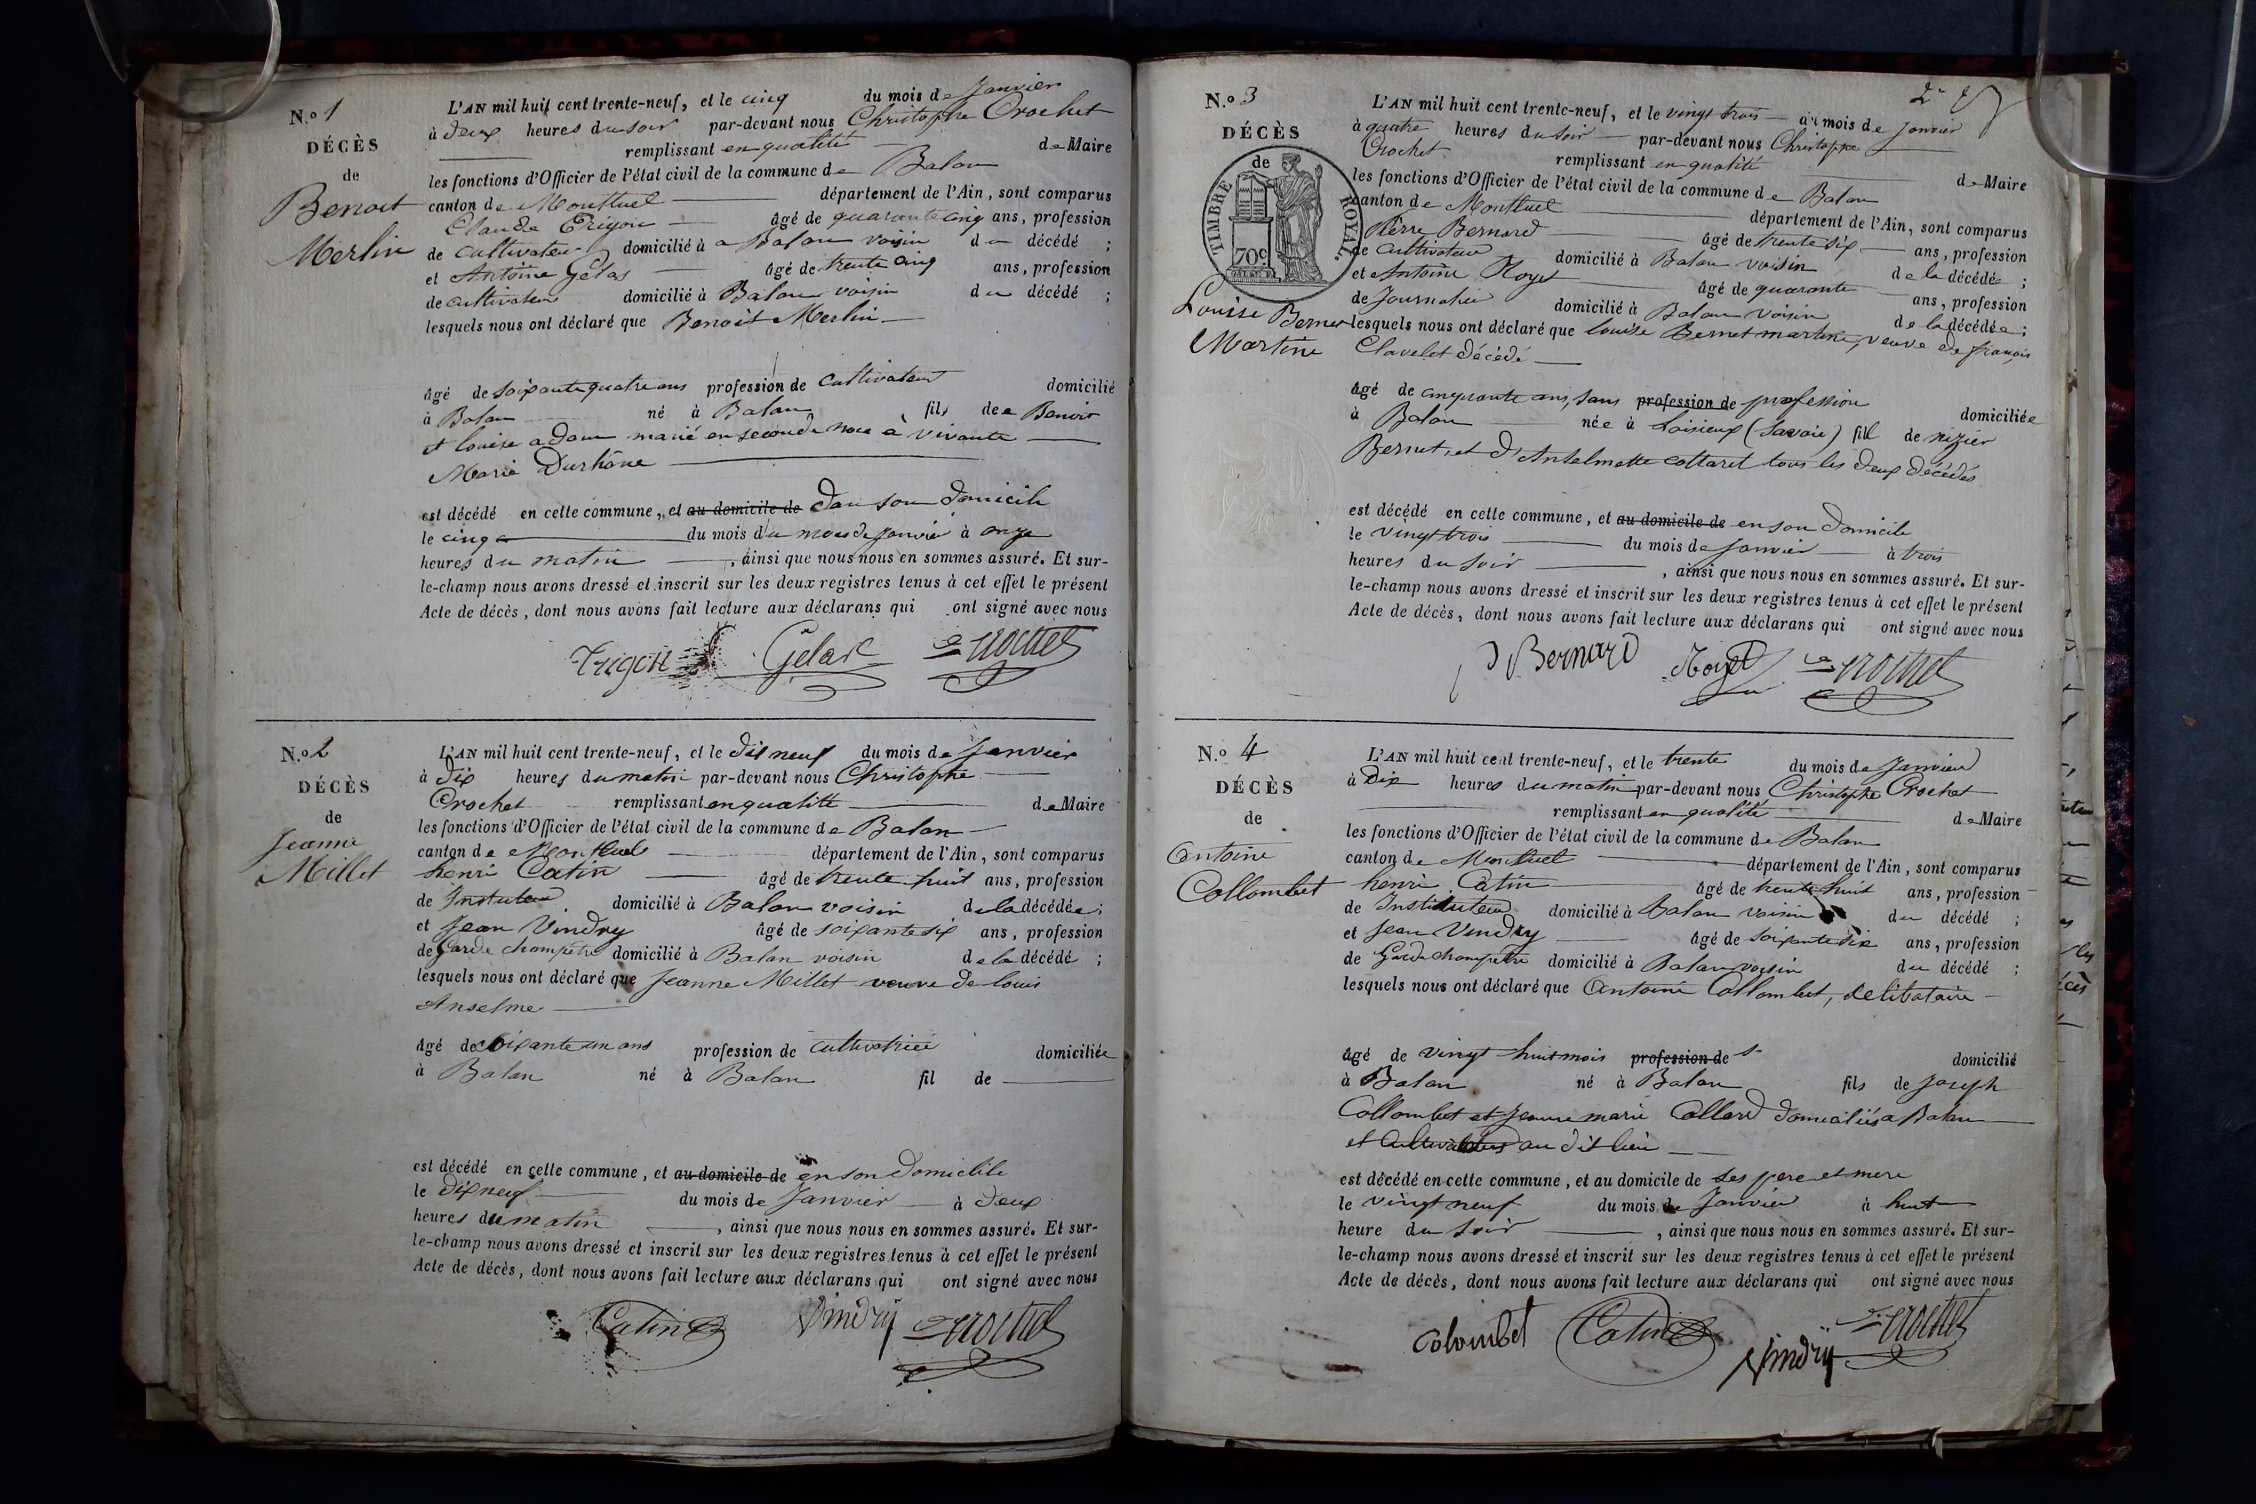 N.o 1
DÉCÈS
de
Benoit
Merlin
L'AN mil huit cent trente-neuf, et le cinq du mois de Janvier
à deux heures du soir par-devant nous Christophe Crochet
remplissant en qualité de Maire
les fonctions d'Officier de l'état civil de la commune de Balan
canton de Montluel département de l'Ain, sont comparus
Claude Trigon âgé de quarante cinq ans, profession
de cultivateur domicilié à a Balan voisin du décédé ;
et Antoine Gelas âgé de trente cinq ans, profession
de cultivateur domicilié à Balan voisin du décédé ;
lesquels nous ont déclaré que Benoit Merlin
âgé de soixante quatre ans profession de cultivateur domicilié
à Balan né à Balan fils de Benoit
et louise adam marié en seconde noce à vivante
Marie Durhône
est décédé en cette commune, et au domicile de dan son domicile
le cinq du mois du mois de janvier à onze
heures du matin, ainsi que nous nous en sommes assuré. Et sur-
le-champ nous avons dressé et inscrit sur les deux registres tenus à cet effet le présent
Acte de décès, dont nous avons fait lecture aux déclarans qui ont signé avec nous
Trigon Gelas Crochet
N.o 2
DÉCÈS
de
Jeanne
Millet
L'AN mil huit cent trente-neuf, et le dix neuf du mois de Janvier
à dix heures du matin par-devant nous Christophe
Crochet remplissant en qualité de Maire
les fonctions d'Officier de l'état civil de la commune de Balan
canton de Montluel département de l'Ain, sont comparus
henri Catin âgé de trente huit ans, profession
de Instituteur domicilié à Balan voisin de la décédée ;
et Jean Vindry âgé de soixante six ans, profession
de Garde champêtre domicilié à Balan voisin de la décédé ;
lesquels nous ont déclaré que Jeanne Millet veuve de louis
Anselme
âgé de soixante un ans profession de cultivatrice domiciliée
à Balan né à Balan fil de
est décédé en cette commune, et au domicile de en son domicile
le dix neuf du mois de Janvier à deux
heures du matin, ainsi que nous nous en sommes assuré. Et sur-
le-champ nous avons dressé et inscrit sur les deux registres tenus à cet effet le présent
Acte de décès, dont nous avons fait lecture aux déclarans qui ont signé avec nous
Catin Vindry Crochet
2e
N.o 3
DÉCÈS
de
TIMBRE ROYAL.
70c
Louise Bernet
Martine
L'AN mil huit cent trente-neuf, et le vingt trois du mois de janvier
à quatre heures du soir par-devant nous Christophe
Crochet remplissant en qualité de Maire
les fonctions d'Officier de l'état civil de la commune de Balan
canton de Montluel département de l'Ain, sont comparus
Pierre Bernard âgé de trente six ans, profession
de cultivateur domicilié à Balan voisin de la décédée ;
et Antoine Noyet âgé de quarante ans, profession
de Journalier domicilié à Balan voisin de la décédée ;
lesquels nous ont déclaré que louise Bernet martine, veuve de françois
Clavelet décédé
âgé de cinquante ans, sans profession de profession domiciliée
à Balan née à Loisieux (Savoie) fille de nizier
Bernet, et d'Antelmette cottaret tous les deux décédés
est décédé en cette commune, et au domicile de en son domicile
le vingt trois du mois de Janvier à trois
heures du soir, ainsi que nous nous en sommes assuré. Et sur-
le-champ nous avons dressé et inscrit sur les deux registres tenus à cet effet le présent
Acte de décès, dont nous avons fait lecture aux déclarans qui ont signé avec nous
Bernard Noyet Crochet
N.o 4
DÉCÈS
de
Antoine
Collombet
L'AN mil huit cent trente-neuf, et le trente du mois de Janvier
à dix heures du matin par-devant nous Christophe Crochet
remplissant en qualité de Maire
les fonctions d'Officier de l'état civil de la commune de Balan
canton de Montluel département de l'Ain, sont comparus
henri Catin âgé de trente huit ans, profession
de Instituteur domicilié à Balan voisin du décédé ;
et Jean Vindry âgé de soixante six ans, profession
de Garde champêtre domicilié à Balan voisin du décédé ;
lesquels nous ont déclaré que Antoine Collombet, celibataire
âgé de vingt huit mois profession de domicilié
à Balan né à Balan fils de Joseph
Collombet et Jeanne marie Collard domiciliés a Balan
et Cultivateurs au dit lieu
est décédé en cette commune, et au domicile de ses pere et mere
le vingt neuf du mois de Janvier à huit
heure du soir, ainsi que nous nous en sommes assuré. Et sur-
le-champ nous avons dressé et inscrit sur les deux registres tenus à cet effet le présent
Acte de décès, dont nous avons fait lecture aux déclarans qui ont signé avec nous
Colombet Catin Vindry Crochet